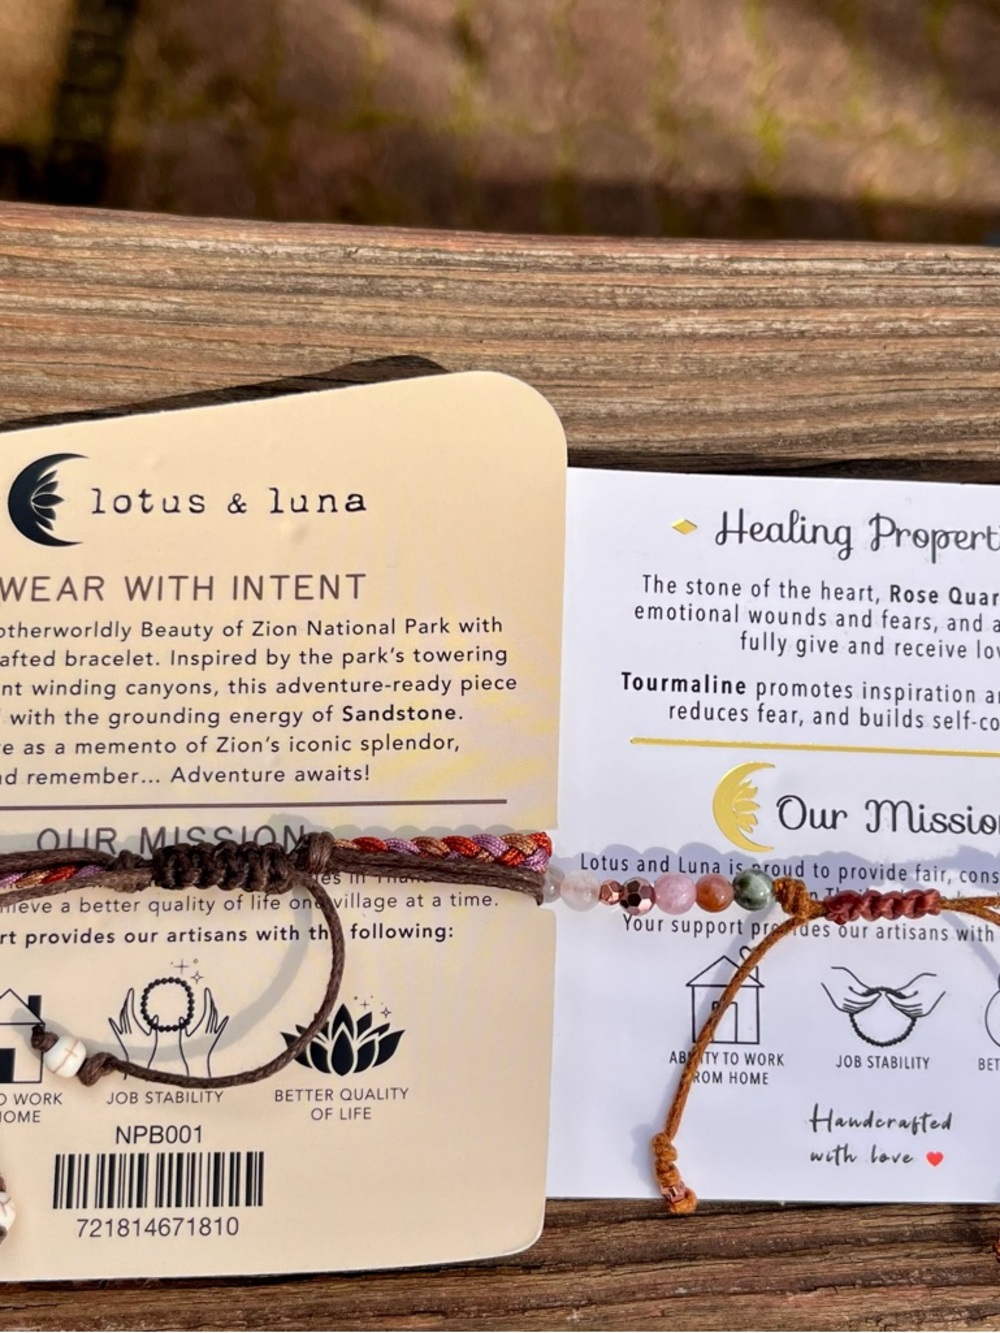 lotus & luna
WEAR WITH INTENT
otherworldly Beauty of Zion National Park with
afted bracelet. Inspired by the park's towering
nt winding canyons, this adventure-ready piece
with the grounding energy of Sandstone.
e as a memento of Zion's iconic splendor,
nd remember... Adventure awaits!
OUR MISSION
es in
ieve a better quality of life one village at a time.
rt provides our artisans with the following:
O WORK
OME
JOB STABILITY
BETTER QUALITY
OF LIFE
NPB001
721814671810
Healing Properti
The stone of the heart, Rose Quar
emotional wounds and fears, and a
fully give and receive lov
Tourmaline promotes inspiration an
reduces fear, and builds self-co
Our Missio
Lotus and Luna is proud to provide fair, cons
Your support provides our artisans with
ABILITY TO WORK
FROM HOME
JOB STABILITY
BET
Handcrafted
with love ♥